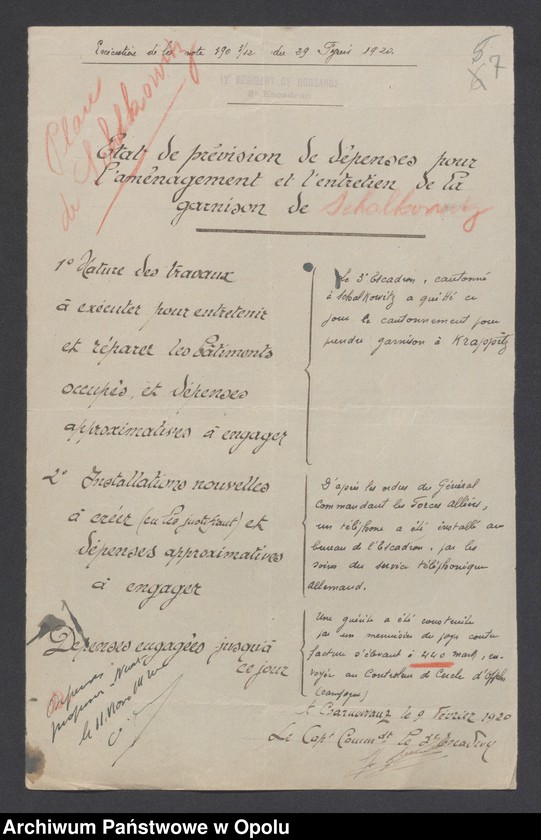 Exécution de la note 190 3/12 du 29 Février 1920.
5
6 7
11e REGIMENT DE HUSSARDS
3e Escadron
Place
de Schalkowitz
Etat de prévision de dépenses pour
l'aménagement et l'entretien de la
garnison de Schalkowitz
1° Nature des travaux
à exécuter pour entretenir
et réparer les bâtiments
occupés, et dépenses
approximatives à engager
Le 3e Escadron, cantonné
à Schalkowitz a quitté ce
jour le cantonnement pour
prendre garnison à Krappitz
2° Installations nouvelles
à créer (en les justifiant) et
dépenses approximatives
à engager
D'après les ordres du Général
Commandant les Forces Alliées,
un téléphone a été installé au
bureau de l'Escadron, par les
soins du service téléphonique
allemand.
Dépenses engagées jusqu'à
ce jour
Une guérite a été construite
par un menuisier du pays contre
facture s'élevant à 440 mark, en-
voyée au Controleur de Cercle d'Oppeln
(campagne)
Dépenses
le 11 Mars 1920
A Czarnowanz le 9 Février 1920
Le Capt Commdt le 3e Escadron
Archiwum Państwowe w Opolu